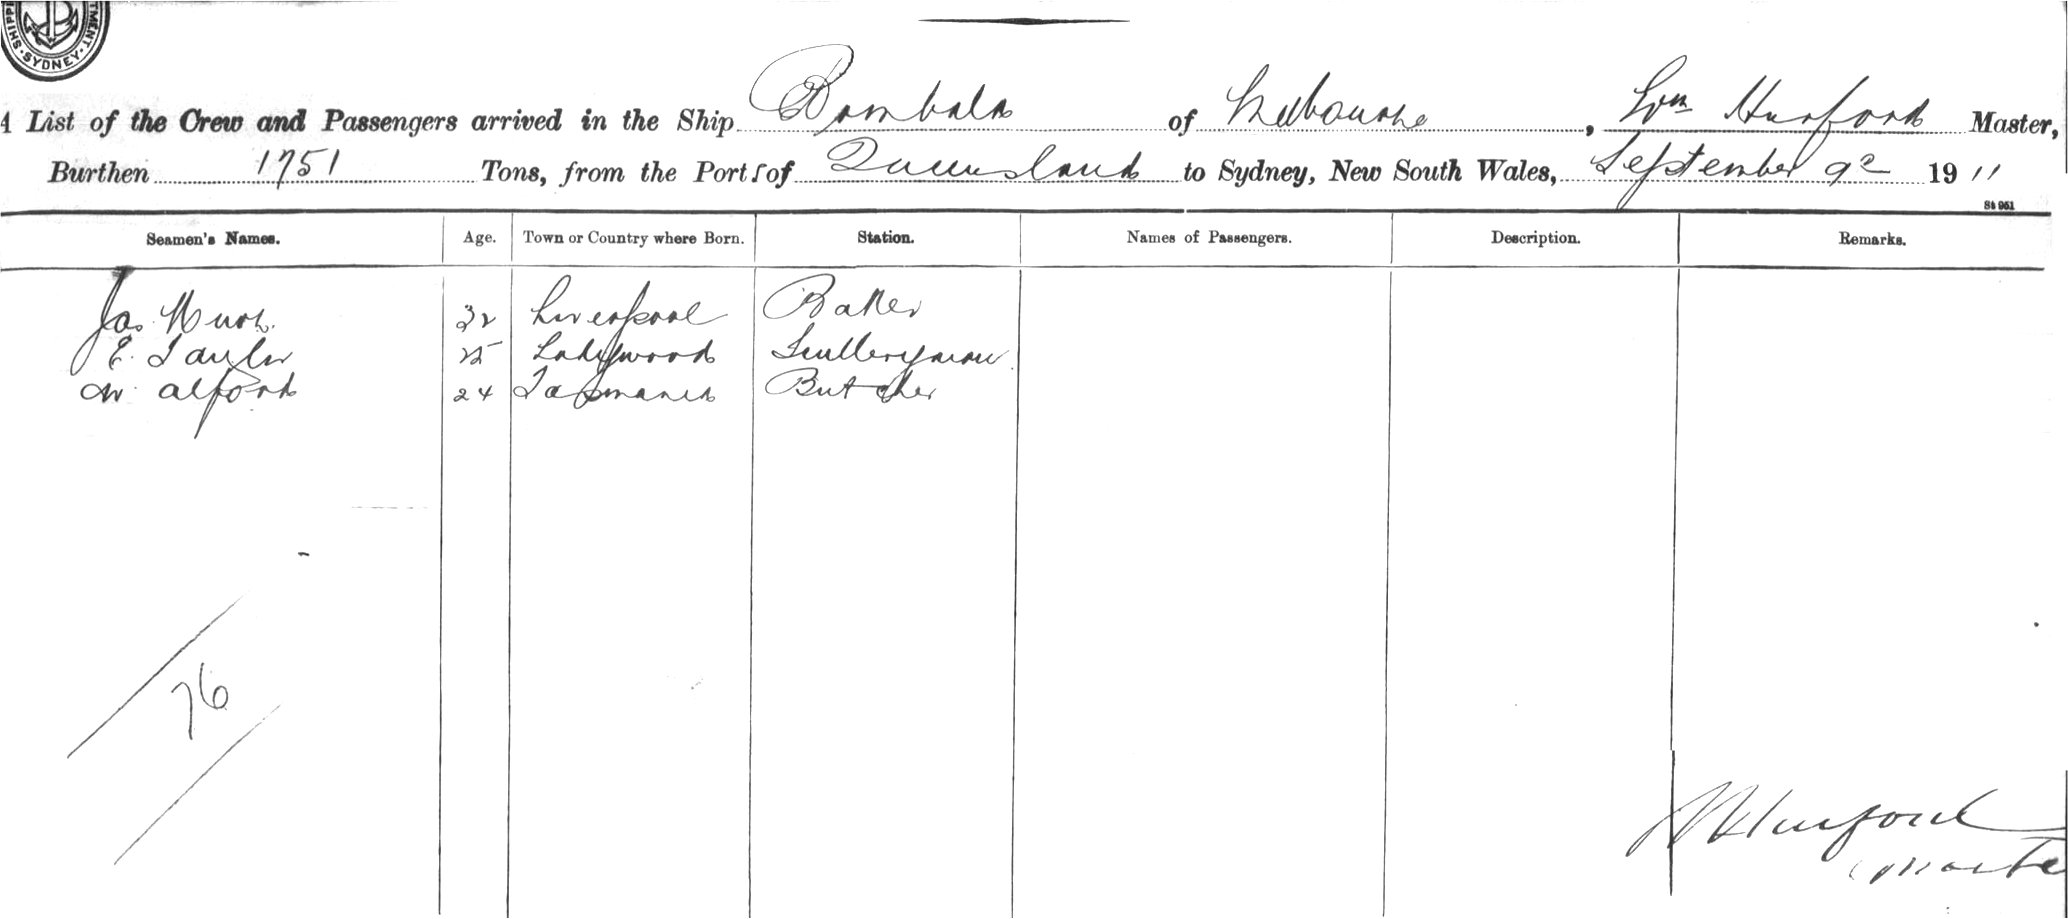 SHIPPI TMENT. SYDNEY
A List of the Crew and Passengers arrived in the Ship Bombala of Melbourne, Wm Hurford Master,
Burthen 1751 Tons, from the Ports of Queensland to Sydney, New South Wales, September 9 1911
St 951
Seamen's Names. Age. Town or Country where Born. Station. Names of Passengers. Description. Remarks.
Jas 32 Liverpool Baker
E. Taylor 25 Ladywood Sculleryman
W Alford 24 Tasmania Butcher
76
Hurford
Maste